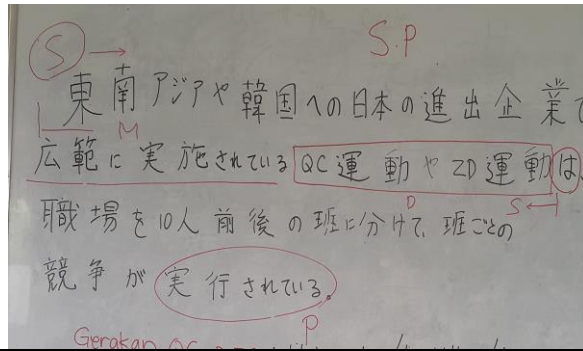 S → S.P
東南アジアや韓国への日本の進出企業で
M
広範に実施されているQC運動やZD運動は
D S
職場を10人前後の班に分けて、班ごとの
競争が実行されている。
P
Gerakan QC